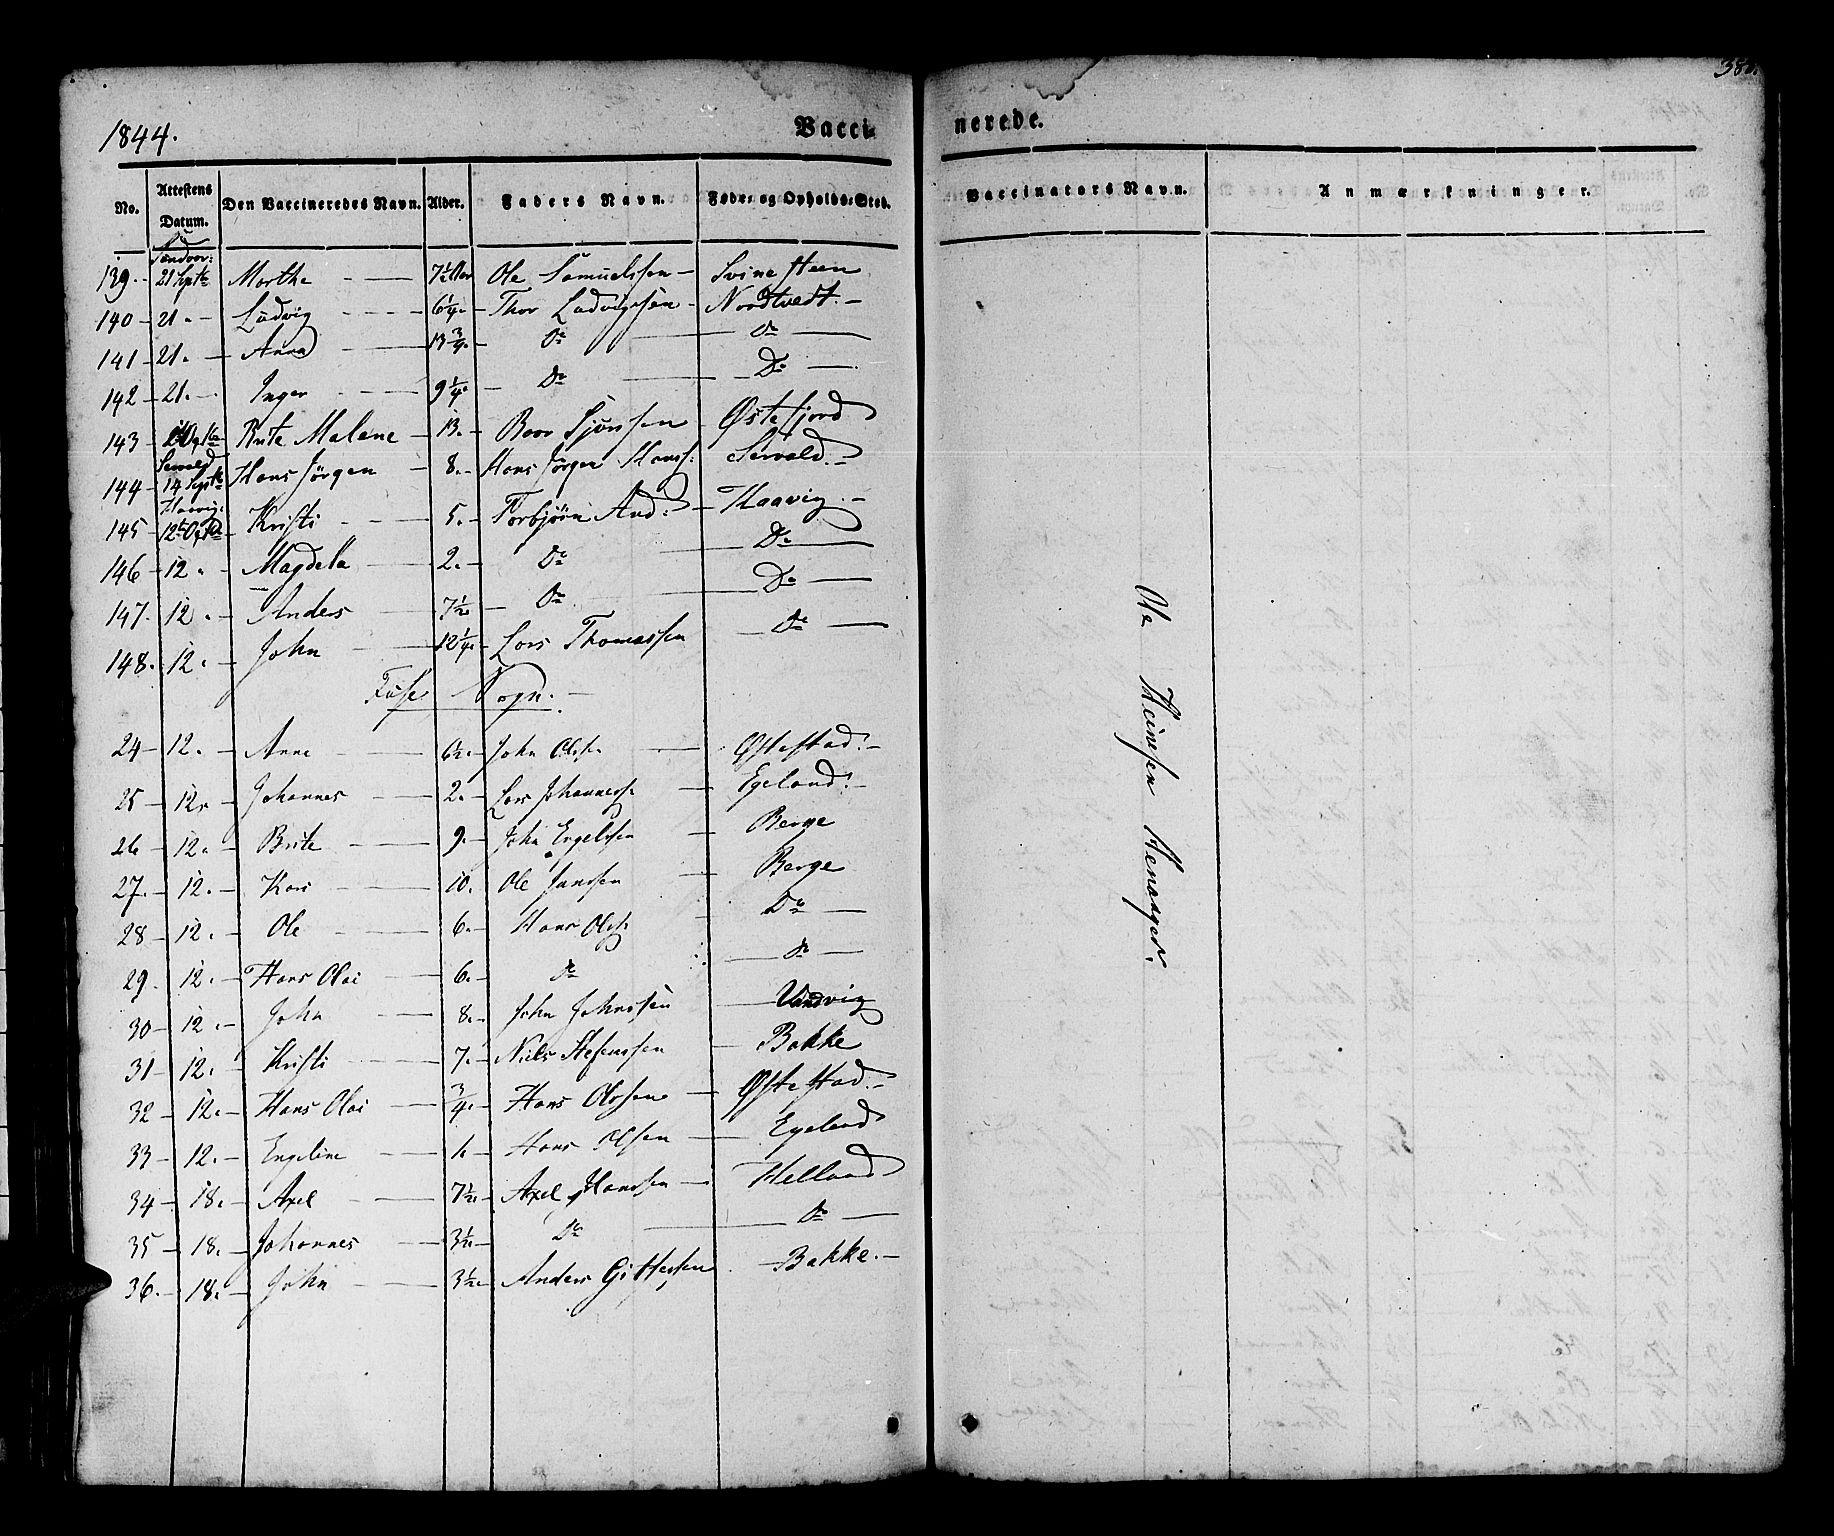 1844.
Vacci-
nerede.
No. Attestens Datum. Den Vaccineredes Navn. Alder. Faders Navn. Føde- og Opholds-Sted.
Vaccinators Navn. Anmærkninger.
139. 21 Septbr Marthe — 7½ Ole Samuelssen — Svinesteen
140 — 21. — Ludvig — 6¼. — Thor Ludvigssen — Nordtvedt. —
141 — 21. — Anna — 13¾. Do — Do —
142 — 21. — Inger — 9¼. — Do — Do —
143 — Brite Malene — 13. — Sjursen — Østefjord
144 — 14 Septbr Hans Jørgen — 8. — Hans Jørgen Hanss: Sævold. —
145 — 12 Octbr Kristi — 5. — Torbjørn And: — Haavig. —
146 — 12. — Magdela — 2. — Do — Do —
147. — 12. — Anders — 7½ — Do — Do —
148. — 12. — John — 12¼. — Lars Thomassen — Do —
Fuse Sogn. —
24 — 12. — Anne — 6½. — John Olss. — Østestad. —
25 — 12. — Johannes — 2. — Lars Johanness. — Egeland. —
26 — 12. — Brite — 9. — John Engelssen — Berge
27. — 12. — Kari — 10. Ole Janssen — Berge
28 — 12. — Ole — 6. — Hans Olss. Do —
29. — 12. — Hans Olai — 6. — Do — Do —
30 — 12. — John — 8. — John Johnssen — Vinnvig
31 — 12. — Kristi — 7. — Niels Stefenssen — Bakke
32 — 12. — Hans Olai — ¾. — Hans Olssen — Østestad. —
33 — 12. — Engeline — 1. — Hans Olsen — Egeland
34 — 18. — Axel — 7½. — Axel Hanssen — Helland
35 — 18. — Johannes — 3½ — Do — Do —
36. — 18. — John — 3½. — Anders Gittessen — Bakke. —
Ole Heinesen Henanger.